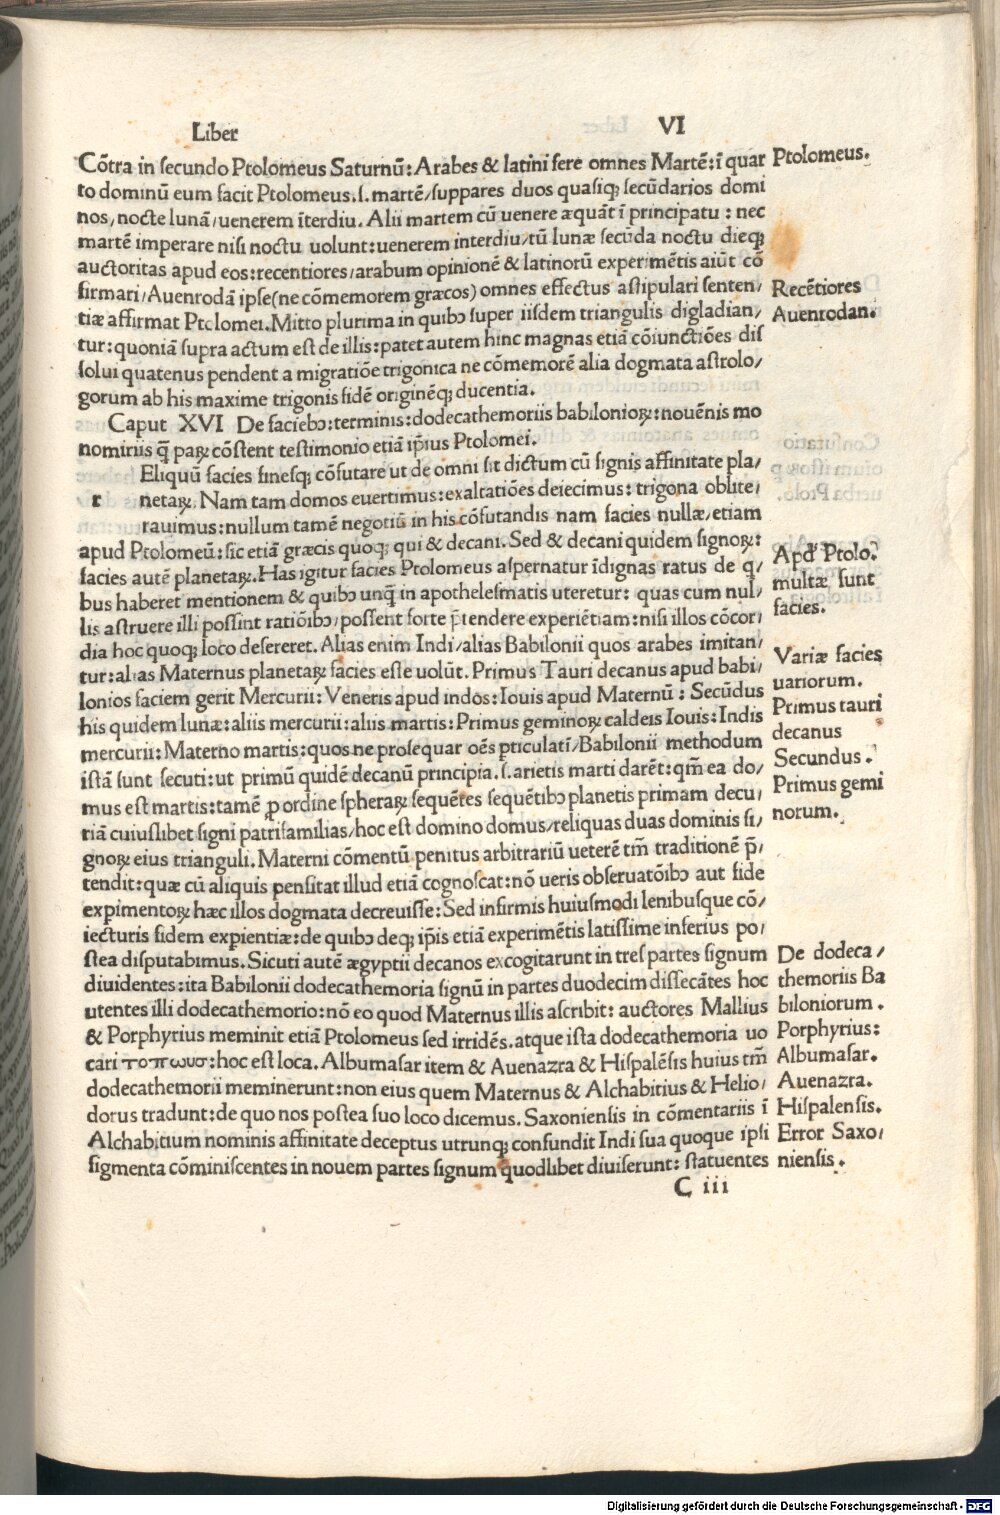 Liber VI
Cōtra in secundo Ptolomeus Saturnū: Arabes & latini fere omnes Martē: ī quar
to dominū eum facit Ptolomeus.s. martē/suppares duos quasiqꝫ secūdarios domi
nos/nocte lunā/uenerem īterdiu. Alii martem cū uenere æquāt ī principatu: nec
martē imperare nisi noctu uolunt: uenerem interdiu/tū lunæ secūda noctu dieqꝫ
auctoritas apud eos: recentiores/arabum opinionē & latinorū experimētis aiūt cō
firmari/Auenrodā ipse(ne cōmemorem græcos) omnes effectus astipulari senten/
tiæ affirmat Ptolomei. Mitto plurima in quibꝰ super iisdem triangulis digladian/
tur: quoniā supra actum est de illis: patet autem hinc magnas etiā cōiunctiōes dis
solui quatenus pendent a migratiōe trigonica ne cōmemorē alia dogmata astrolo/
gorum ab his maxime trigonis fidē originēqꝫ ducentia.
Caput XVI De faciebꝰ: terminis: dodecathemoriis babilonioꝝ: nouēnis mo
nomiriis q̄ paꝝ cōstent testimonio etiā ip̄ius Ptolomei.
Eliquū facies finesqꝫ cōfutare ut de omni sit dictum cū signis affinitate pla/
r netaꝝ. Nam tam domos euertimus: exaltatiōes deiecimus: trigona oblite/
rauimus: nullum tamē negotiū in his cōfutandis nam facies nullæ/etiam
apud Ptolomeū: sic etiā græcis quoqꝫ qui & decani. Sed & decani quidem signoꝝ:
facies autē planetaꝝ. Has igitur facies Ptolomeus aspernatur īdignas ratus de q/
bus haberet mentionem & quibꝰ unq̄ in apothelesmatis uteretur: quas cum nul/
lis astruere illi possint ratiōibꝰ/possent forte p̄tendere experiētiam: nisi illos cōcor/
dia hoc quoqꝫ loco desereret. Alias enim Indi/alias Babilonii quos arabes imitan/
tur: alias Maternus planetaꝝ facies esse uolūt. Primus Tauri decanus apud babi/
lonios faciem gerit Mercurii: Veneris apud indos: Iouis apud Maternū: Secūdus
his quidem lunæ: aliis mercurii: aliis martis: Primus geminoꝝ caldeis Iouis: Indis
mercurii: Materno martis: quos ne prosequar oēs pticulatī/Babilonii methodum
istā sunt secuti: ut primū quidē decanū principia.s. arietis marti darēt: qm̄ ea do/
mus est martis: tamē ꝓ ordine spheraꝝ sequētes sequētibꝰ planetis primam decu/
riā cuiuslibet signi patrifamilias/hoc est domino domus/reliquas duas dominis si/
gnoꝝ eius trianguli. Materni cōmentū penitus arbitrariū ueterē tm̄ traditionē p̄/
tendit: quæ cū aliquis pensitat illud etiā cognoscat: nō ueris obseruatōibꝰ aut fide
expimentoꝝ hæc illos dogmata decreuisse: Sed infirmis huiusmodi lenibusque cō/
iecturis fidem expientiæ: de quibꝰ deqꝫ ip̄is etiā experimētis latissime inferius po/
stea disputabimus. Sicuti autē ægyptii decanos excogitarunt in tres partes signum
diuidentes: ita Babilonii dodecathemoria signū in partes duodecim dissecātes hoc
utentes illi dodecathemorio: nō eo quod Maternus illis ascribit: auctores Mallius
& Porphyrius meminit etiā Ptolomeus sed irridēs. atque ista dodecathemoria uo
cari τοπωυσ: hoc est loca. Albumasar item & Auenazra & Hispalēsis huius tm̄
dodecathemorii meminerunt: non eius quem Maternus & Alchabitius & Helio/
dorus tradunt: de quo nos postea suo loco dicemus. Saxoniensis in cōmentariis ī
Alchabitium nominis affinitate deceptus utrunqꝫ confundit Indi sua quoque ipsi
figmenta cōminiscentes in nouem partes signum quodlibet diuiserunt: statuentes
C iii
Ptolomeus.
Recētiores
Auenrodan.
Apd̄ Ptolo.
multæ sunt
facies.
Variæ facies
uariorum.
Primus tauri
decanus
Secundus.
Primus gemi
norum.
De dodeca/
themoriis Ba
biloniorum.
Porphyrius:
Albumasar.
Auenazra.
Hispalensis.
Error Saxo/
niensis.
Digitalisierung gefördert durch die Deutsche Forschungsgemeinschaft - DFG